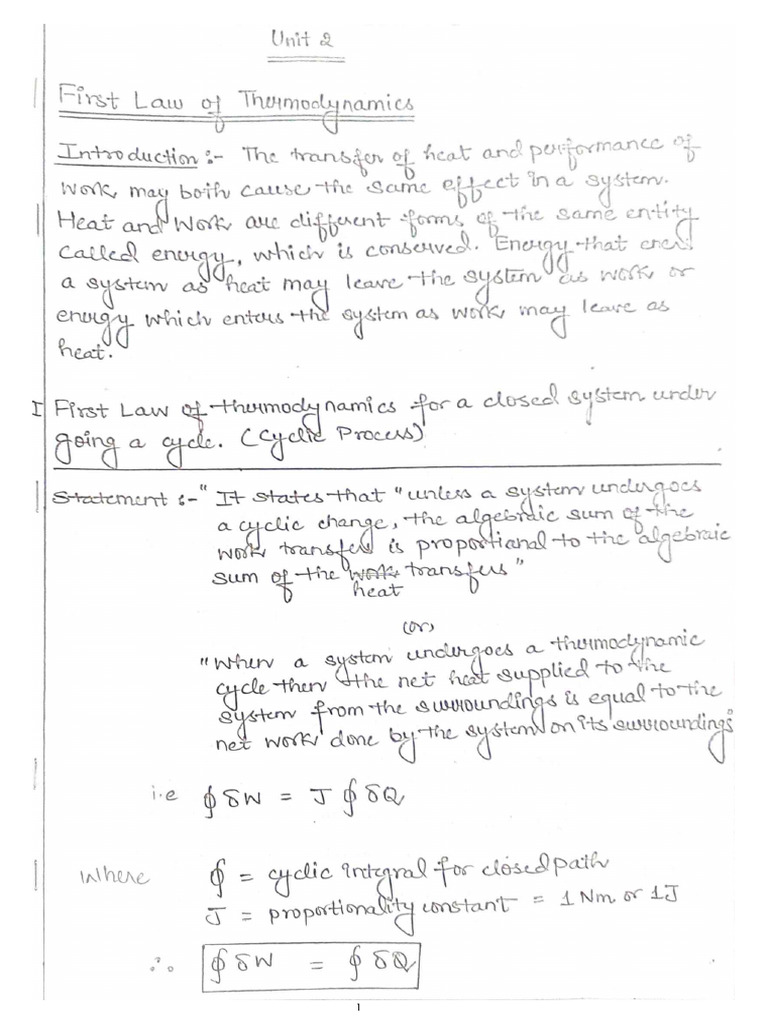 Unit 2
First Law of Thermodynamics
Introduction :- The transfer of heat and performance of
work may both cause the same effect in a system.
Heat and Work are different forms of the same entity
called energy, which is conserved. Energy that
a system as heat may leave the system as work or
energy which enters the system as work may leave as
heat.
I First Law of thermodynamics for a closed system under
going a cycle. (Cyclic Process)
Statement :- " It states that "unless a system undergoes
a cyclic change, the algebraic sum of the
work transfer is proportional to the algebraic
sum of the work transfers"
heat
(or)
"When a system undergoes a thermodynamic
cycle then the net heat supplied to the
system from the surroundings is equal to the
net work done by the system on its surroundings"
i.e ∮ δW = J ∮ δQ
Where ∮ = cyclic integral for closed path
J = proportionality constant = 1 Nm or 1J
∴ ∮ δW = ∮ δQ
1